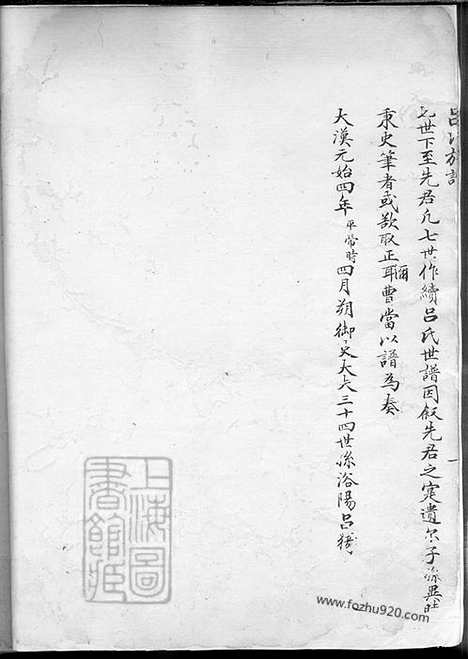 呂氏族譜
七世下至先君凡七世作續呂氏世譜因叙先君之寔遺尔子孫異時
秉史筆者或欲取正爾耳曹當以譜為奏
大漢元始四年平帝時四月朔御史大夫三十四世孫洛陽呂
上海圖書館藏
www.fozhu920.com